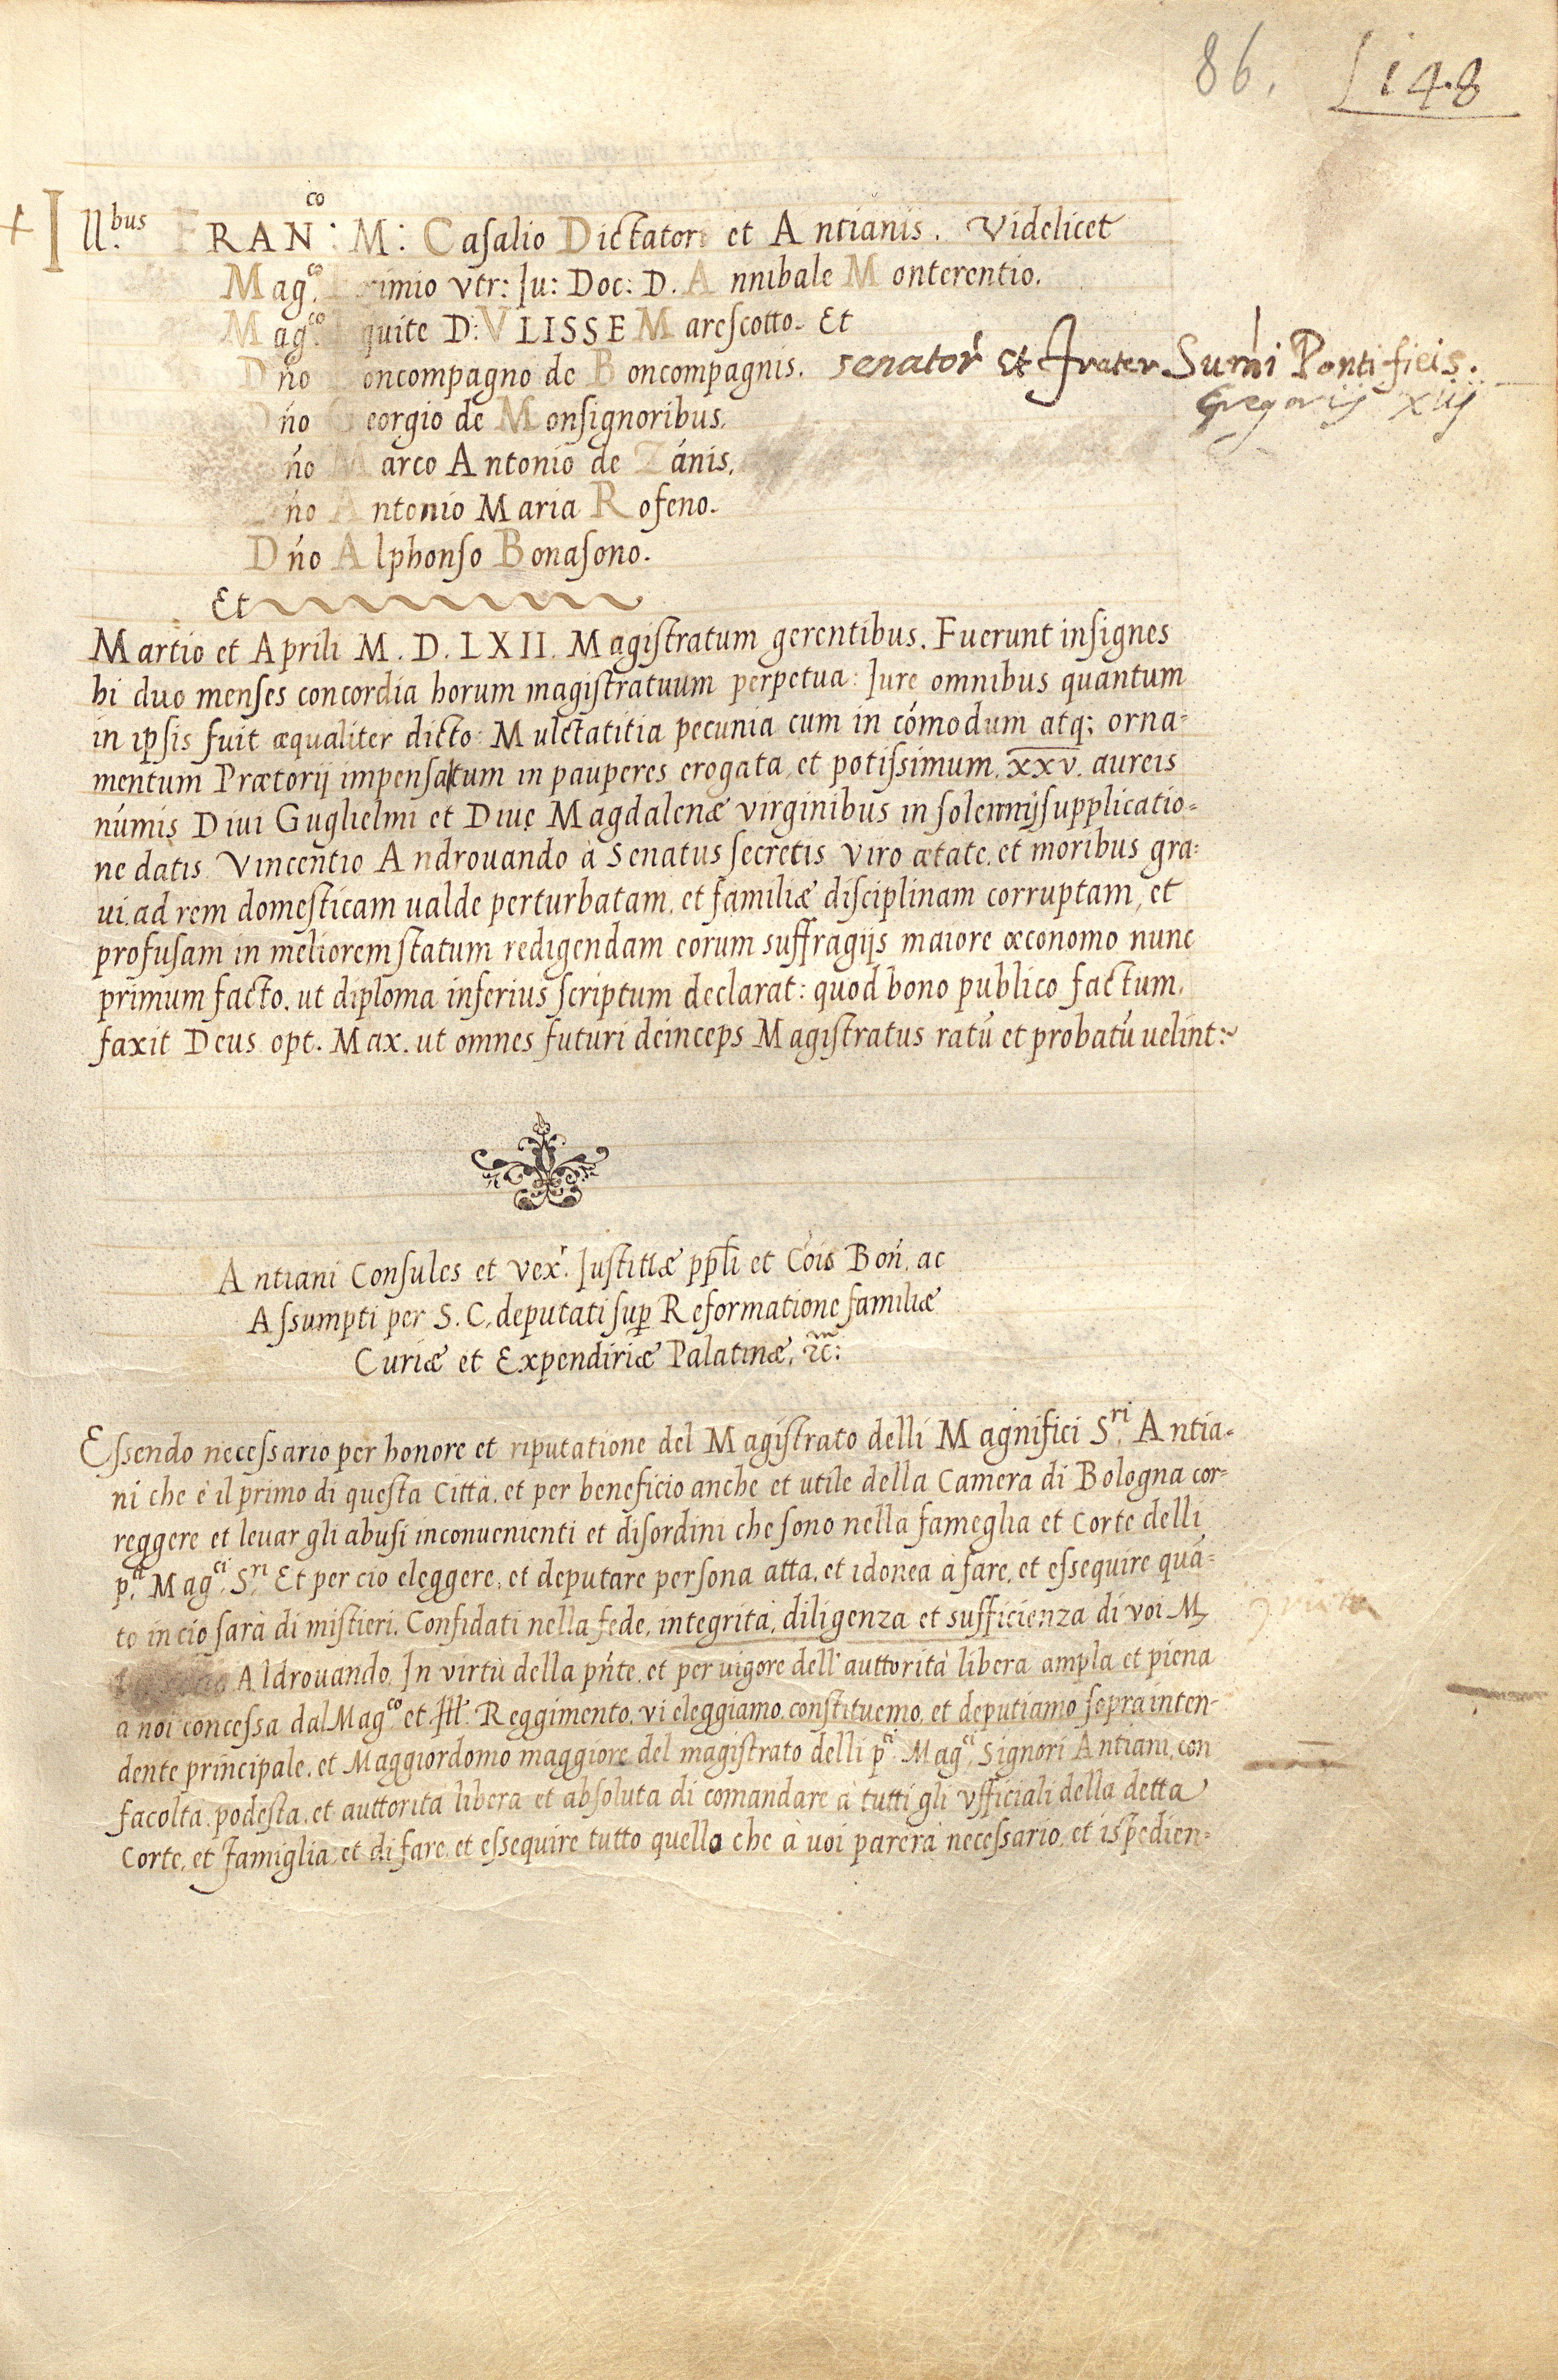 86. 148
+ Ill.bus FRAN:co M: Casalio Dictatori et Antianis. Videlicet
Mag.co utr: Iu: Doc: D. Annibale Monterentio.
Mag.co Equite D: VLISSE Marescotto. Et
Dño Boncompagno de Boncompagnis. senator et frater Sumi Pontificis.
Gregorij xiij
Dño Georgio de Monsignoribus.
Dño Marco Antonio de Zánis.
Dño Antonio Maria Rofeno.
Dño Alphonso Bonasono.
Et
Martio et Aprili M. D. LXII. Magistratum gerentibus. Fuerunt insignes
hi duo menses concordia horum magistratuum perpetua: Iure omnibus quantum
in ipsis fuit æqualiter dicto: Mulctatitia pecunia cum in cómodum atq; orna-
mentum Prætorij impensa tum in pauperes erogata, et potissimum. xxv. aureis
númis Diui Guglielmi et Diuę Magdalenæ virginibus in solennij supplicatio-
ne datis. Vincentio Androuando à Senatus secretis viro ætate, et moribus gra-
ui, ad rem domesticam ualde perturbatam, et familiæ disciplinam corruptam, et
profusam in meliorem statum redigendam eorum suffragijs maiore œconomo nunc
primum facto, ut diploma inferius scriptum declarat: quod bono publico factum,
faxit Deus opt. Max. ut omnes futuri deinceps Magistratus ratū et probatū uelint:~
Antiani Consules et Vex.r Iustitiæ ppli et Cóis Boń. ac
Assumpti per S. C. deputati sup Reformatione familiæ
Curiæ et Expendiriæ Palatinæ,
Essendo necessario per honore et riputatione del Magistrato delli Magnifici S.ri Antia-
ni che è il primo di questa Città, et per beneficio anche et utile della Camera di Bologna cor-
reggere et leuar gli abusi inconuenienti et disordini che sono nella fameglia et Corte delli
p.ti Mag.ci S.ri Et per cio eleggere, et deputare persona atta, et idonea à fare, et essequire quã-
to in cio sarà di mistieri. Confidati nella fede, integrità, diligenza et sufficienza di voi M.
Aldrouando, In virtù della pñte, et per uigore dell'auttorità libera ampla et piena
a noi concessa dal Mag.co et Ill. Reggimento, vi eleggiamo, constituemo, et deputiamo soprainten-
dente principale, et Maggiordomo maggiore del magistrato delli p.ti Mag.ci Signori Antiani, con
facoltà, podestà, et auttorità libera et absoluta di comandare à tutti gli vfficiali della detta
Corte, et famiglia, et di fare, et essequire tutto quello che à uoi parerà necessario, et ispedien-